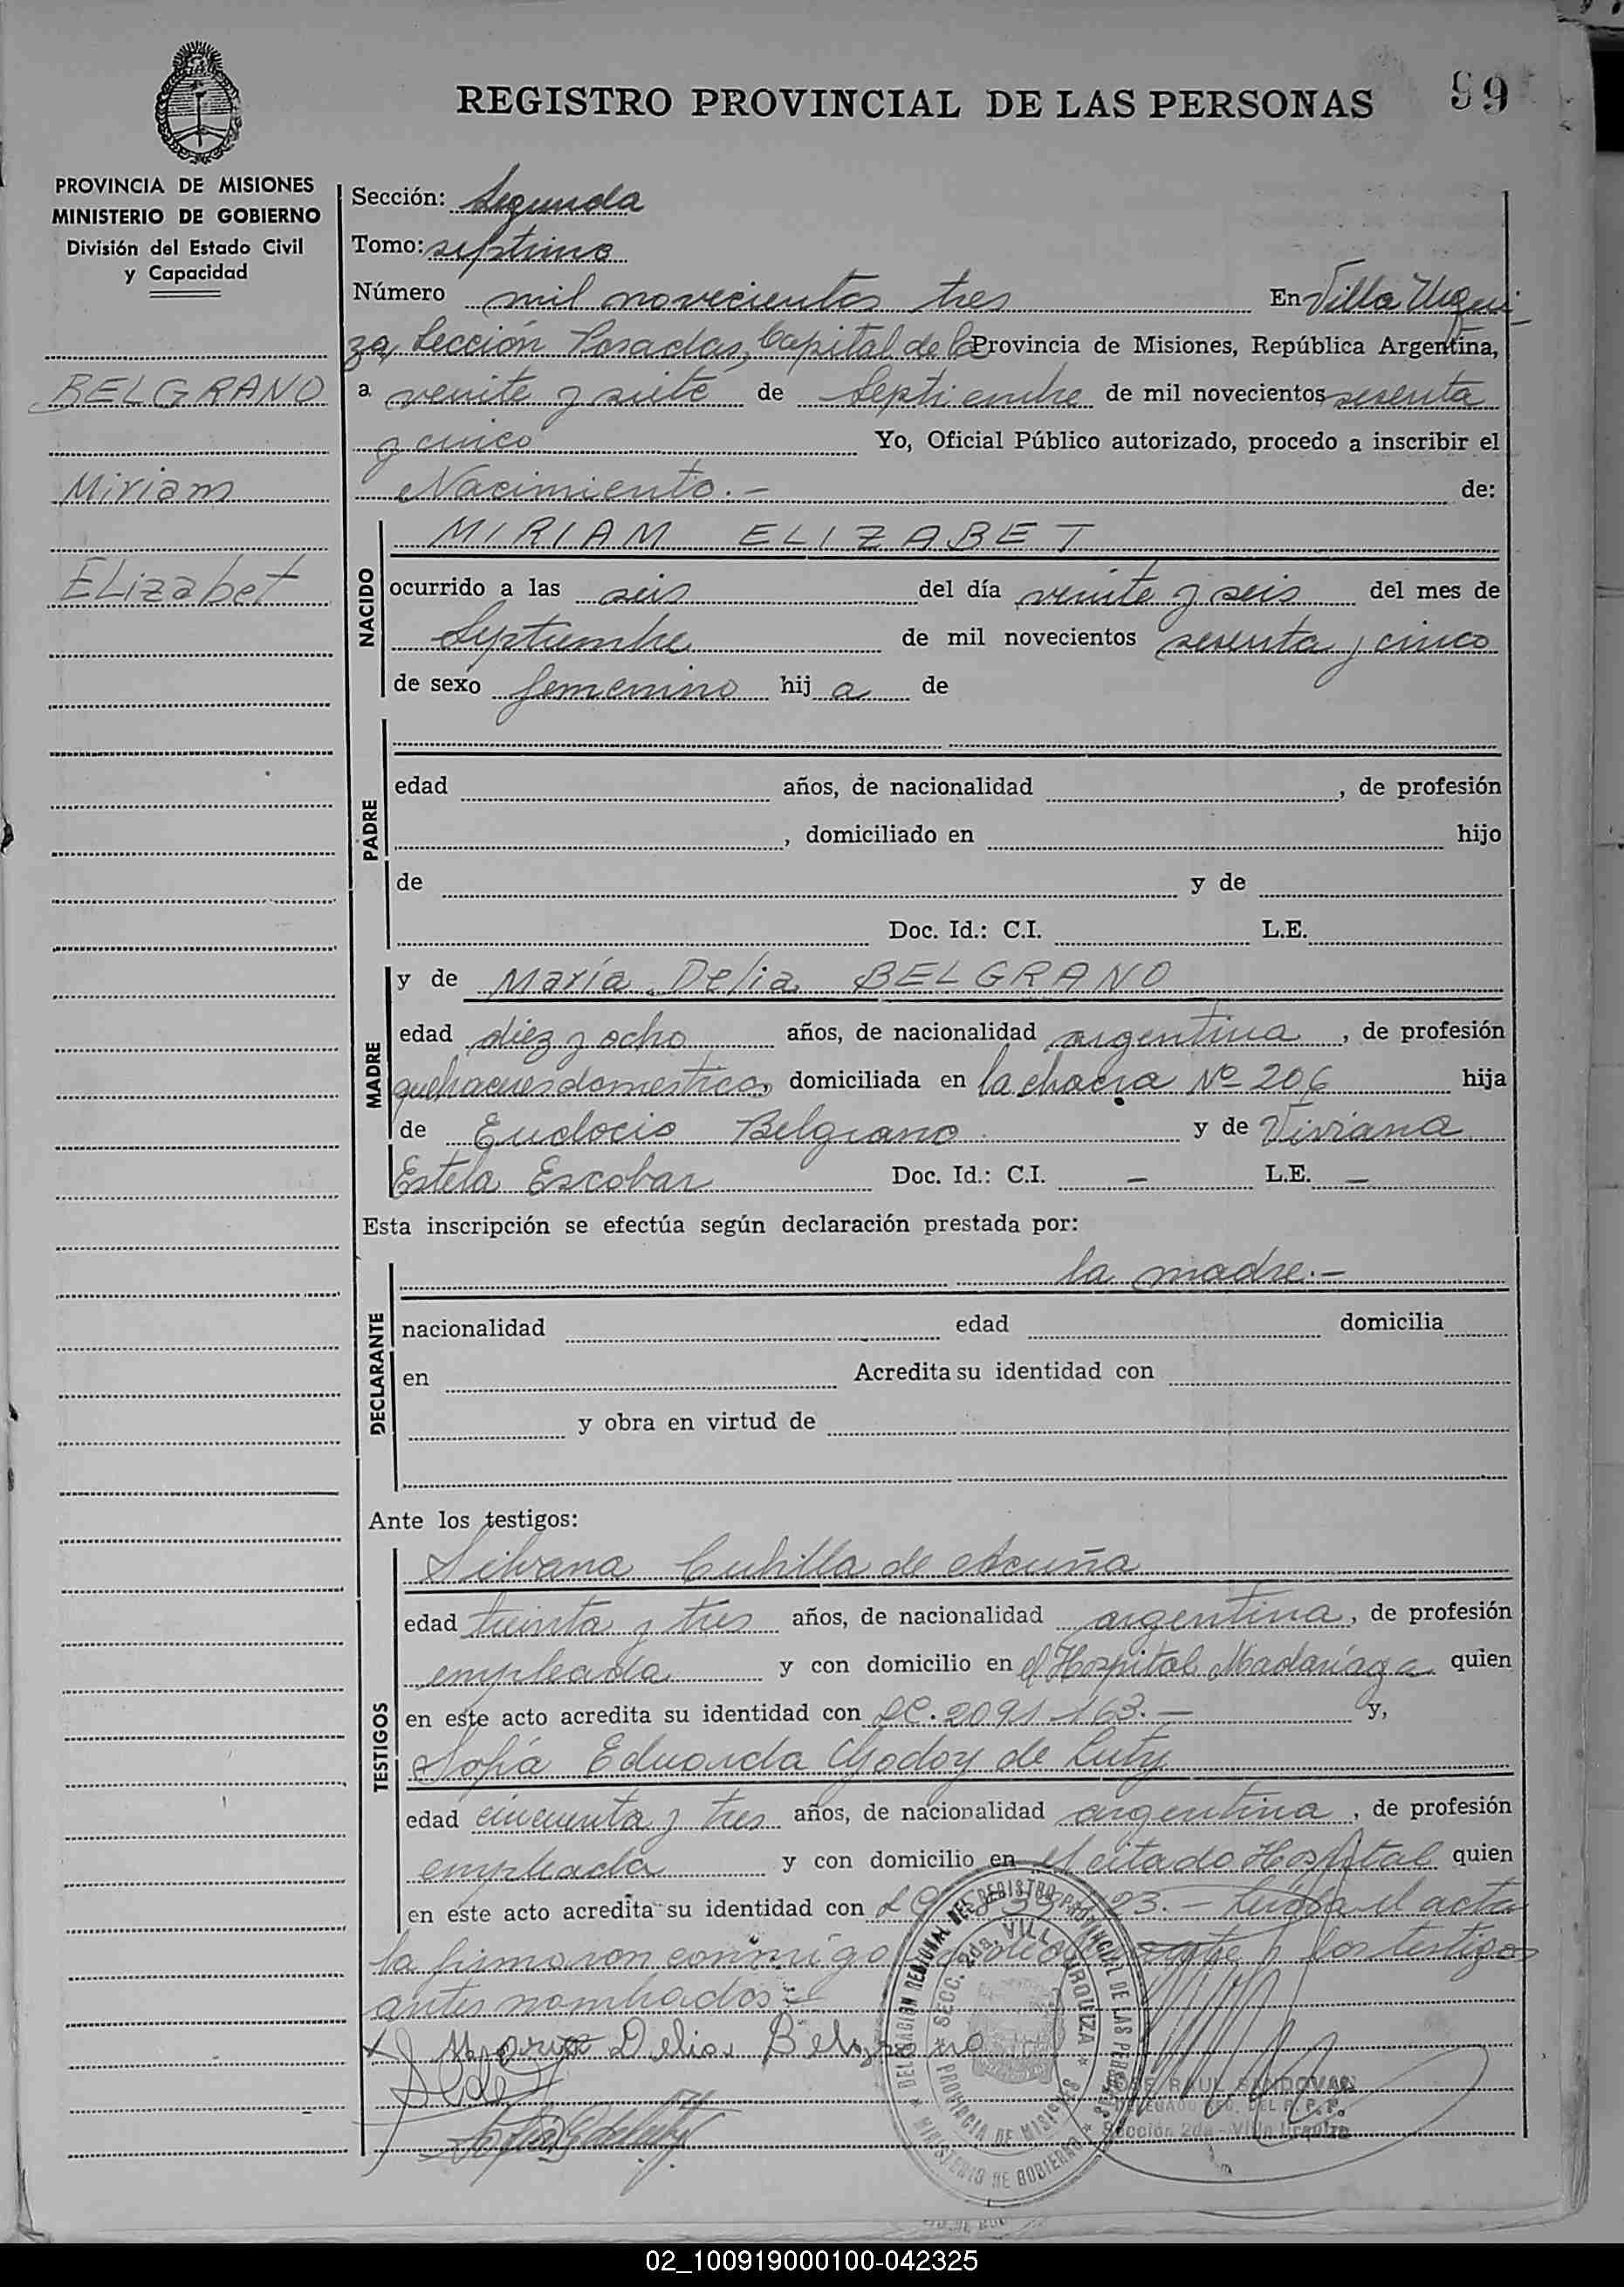 REGISTRO PROVINCIAL DE LAS PERSONAS
99
PROVINCIA DE MISIONES
MINISTERIO DE GOBIERNO
División del Estado Civil
y Capacidad
BELGRANO
Miriam
Elizabet
Sección: Segunda
Tomo: septimo
Número mil novecientos tres En Villa Urqui-
za, Sección Posadas, Capital de la Provincia de Misiones, República Argentina,
a veinte y siete de Septiembre de mil novecientos sesenta
y cinco Yo, Oficial Público autorizado, procedo a inscribir el
Nacimiento.- de:
NACIDO
MIRIAM ELIZABET
ocurrido a las seis del día veinte y seis del mes de
Septiembre de mil novecientos sesenta y cinco
de sexo femenino hij a de
PADRE
edad años, de nacionalidad , de profesión
, domiciliado en hijo
de y de
Doc. Id.: C.I. L.E.
MADRE
y de María Delia BELGRANO
edad diez y ocho años, de nacionalidad argentina, de profesión
quehaceres domesticos, domiciliada en la chacra Nº 206 hija
de Eudocio Belgrano y de Viviana
Estela Escobar Doc. Id.: C.I. — L.E. —
Esta inscripción se efectúa según declaración prestada por:
la madre.-
DECLARANTE
nacionalidad edad domicilia
en Acredita su identidad con
y obra en virtud de
Ante los testigos:
TESTIGOS
Silvana Cubilla de Acuña
edad treinta y tres años, de nacionalidad argentina, de profesión
empleada y con domicilio en el Hospital Madariaga quien
en este acto acredita su identidad con LC. 2091-163.- y,
Sofía Eduarda Godoy de Luty
edad cincuenta y tres años, de nacionalidad argentina, de profesión
empleada y con domicilio en el citado Hospital quien
en este acto acredita su identidad con LC 123.- Leída el acta
la firmaron conmigo y los testigos
antes nombrados.-
Maria Delia Belgrano
DELEGACION REGIONAL DEL REGISTRO PROVINCIAL DE LAS PERSONAS
MINISTERIO DE GOBIERNO
SECC. 2da. VILLA URQUIZA
PROVINCIA DE MISIONES
RAUL SANDOVAL
DELEGADO REG. DEL R. P. P.
Sección 2da - Villa Urquiza
02_100919000100-042325